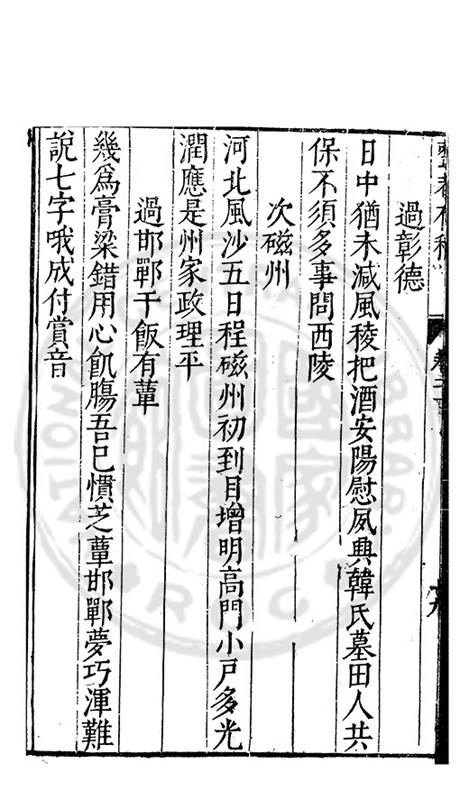 過彰德
日中猶未減風稜把酒安陽慰夙興韓氏墓田人共
保不須多事問西陵
次磁州
河北風沙五日程磁州初到目增明高門小戶多光
潤應是州家政理平
過邯鄲干飯有蕈
幾爲膏梁錯用心飢腸吾已慣芝蕈邯鄲夢巧渾難
說七字哦成付賞音